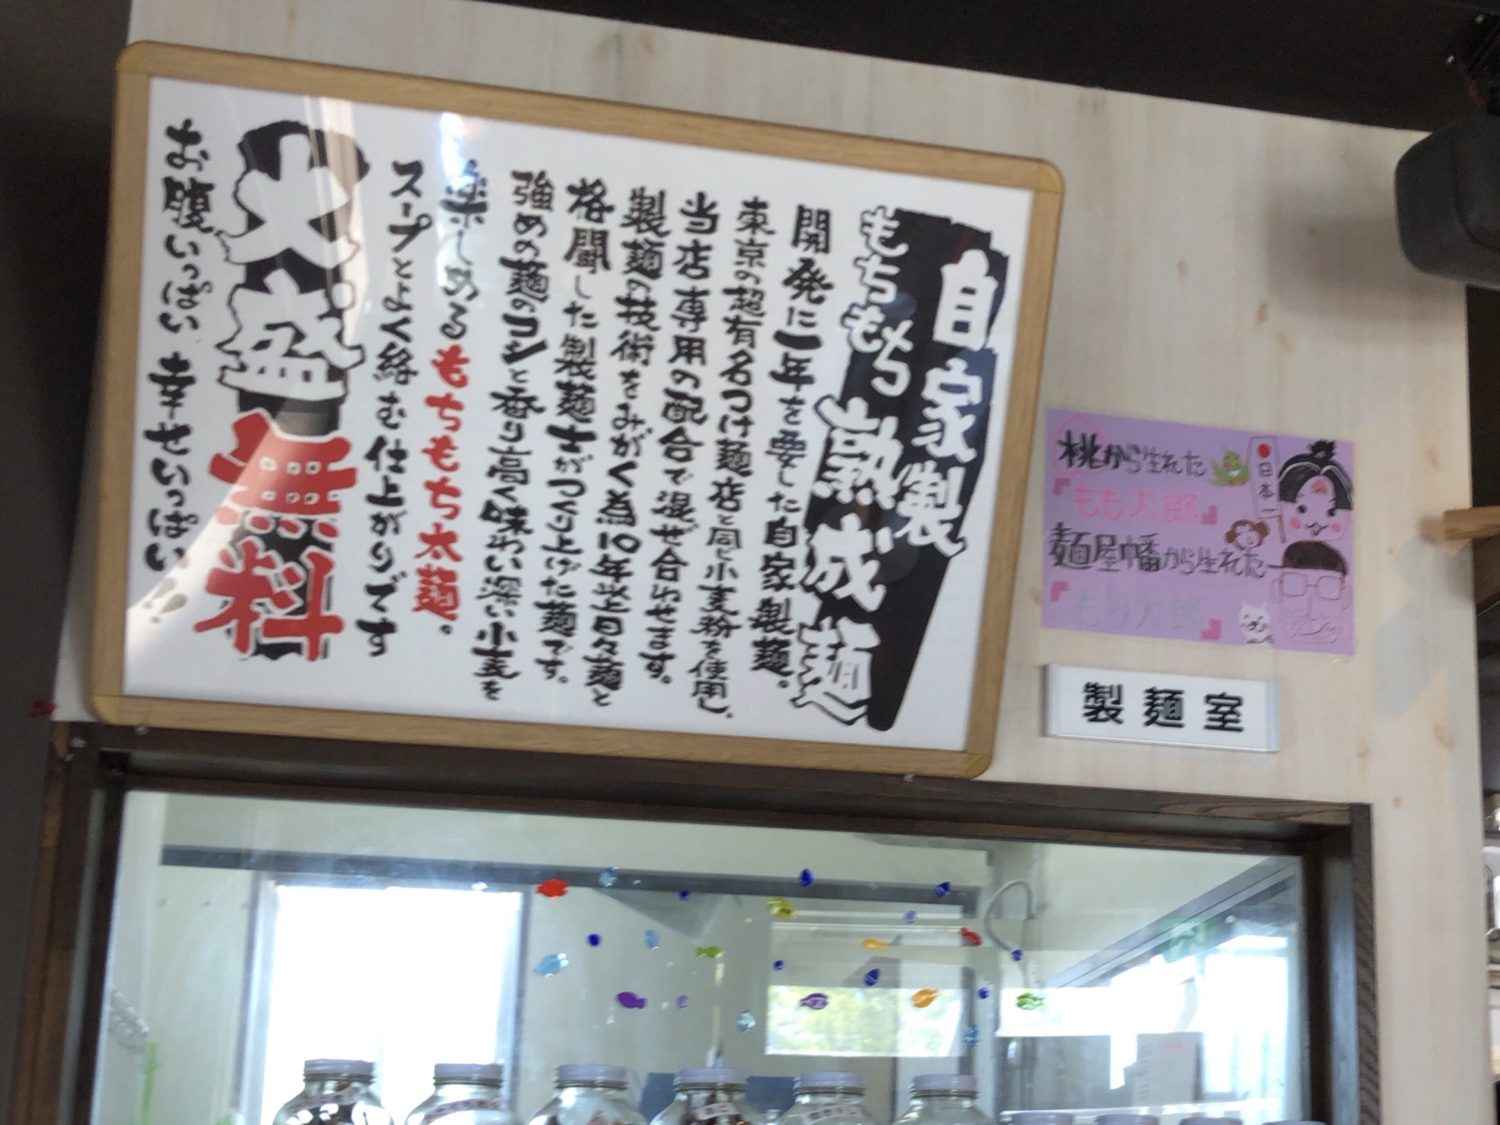 自家製
もちもち熟成麺
開発に一年を要した自家製麺。
東京の超有名つけ麺店と同じ小麦粉を使用し、
当店専用の配合で混ぜ合わせます。
製麺の技術をみがく為10年以上日々麺と
格闘した製麺士がつくり上げた麺です。
強めの麺のコシと香り高く味わい深い小麦を
楽しめるもちもち太麺。
スープとよく絡む仕上がりです
大盛無料
お腹いっぱい 幸せいっぱい!!
桃から生れた
『もも太郎』
麺屋幡から生れた
『もり太郎』
日本一
製麺室